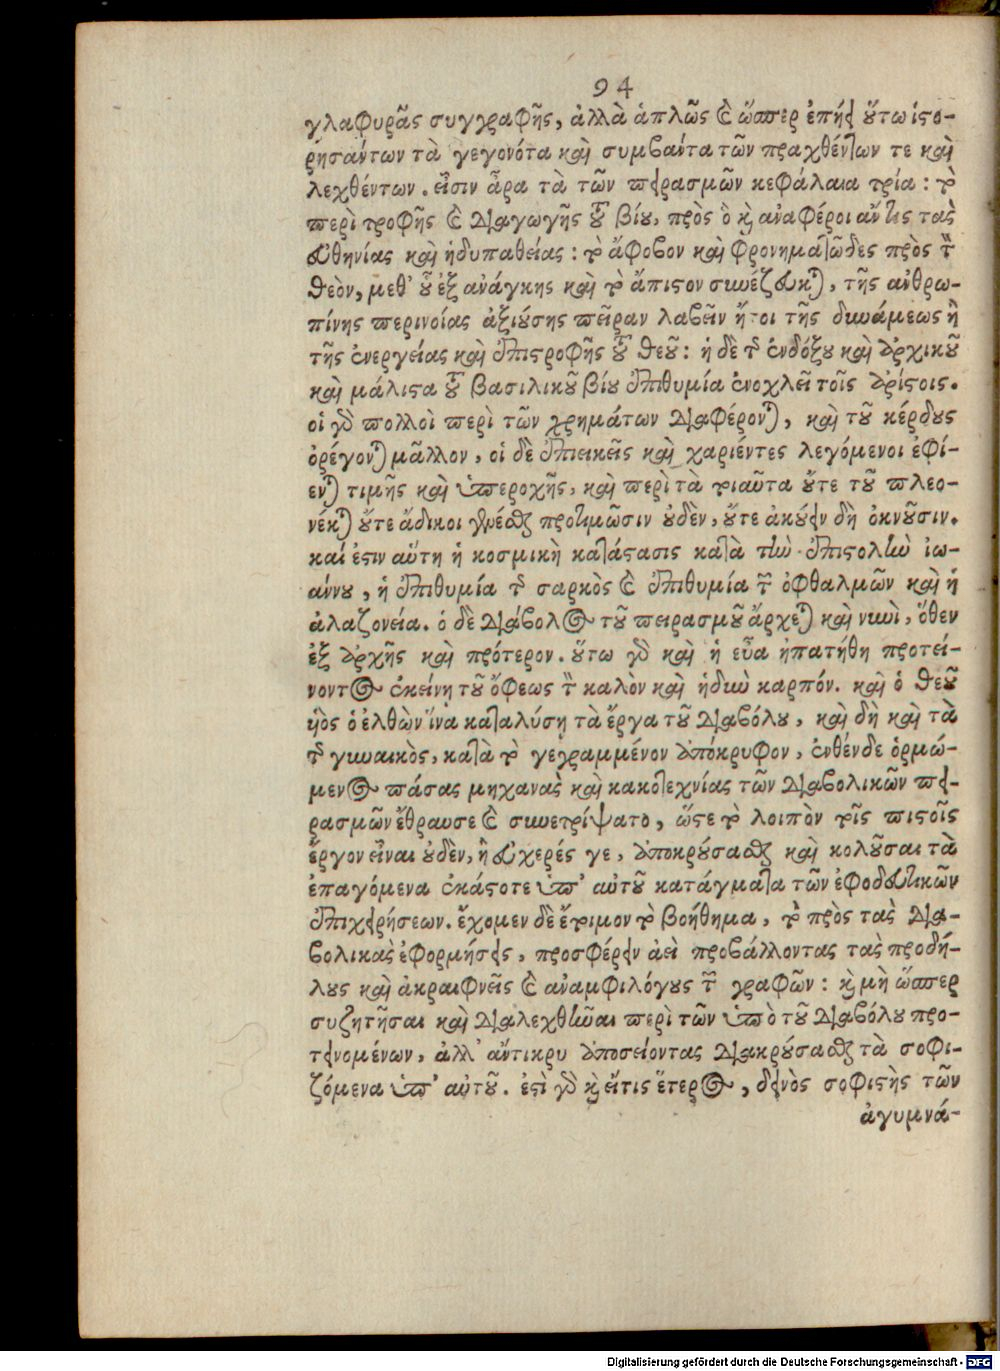 94
γλαφυρᾶς συγγραφῆς, ἀλλὰ ἁπλῶς καὶ ὥσπερ ἐπῄει οὕτω ἱστο-
ρησάντων τὰ γεγονότα καὶ συμβάντα τῶν πραχθέντων τε καὶ
λεχθέντων. εἰσὶν ἆρα τὰ τῶν πειρασμῶν κεφάλαια τρία: τὸ
περὶ τροφῆς καὶ διαγωγῆς τοῦ βίου, πρὸς ὃ καὶ ἀναφέροι ἄν τις τὰς
εὐθηνίας καὶ ἡδυπαθείας: τὸ ἄφοβον καὶ φρονηματῶδες πρὸς τὸν
θεὸν, μεθ' οὗ ἐξ ἀνάγκης καὶ τὸ ἄπιστον συνέζευκται, τῆς ἀνθρω-
πίνης περινοίας ἀξιούσης πεῖραν λαβεῖν ἤτοι τῆς δυνάμεως ἢ
τῆς ἐνεργείας καὶ ἐπιστροφῆς τοῦ θεοῦ: ἡ δὲ τοῦ ἐνδόξου καὶ ἀρχικοῦ
καὶ μάλιστα τοῦ βασιλικοῦ βίου ἐπιθυμία ἐνοχλεῖ τοῖς ἀρίστοις.
οἱ γὰρ πολλοὶ περὶ τῶν χρημάτων διαφέρονται, καὶ τοῦ κέρδους
ὀρέγονται μᾶλλον, οἱ δὲ ἐπιεικεῖς καὶ χαρίεντες λεγόμενοι ἐφί-
ενται τιμῆς καὶ ὑπεροχῆς, καὶ περὶ τὰ τοιαῦτα οὔτε τοῦ πλεο-
νέκται οὔτε ἄδικοι γενέσθαι προτιμῶσιν οὐδὲν, οὔτε ἀκούειν δὴ ὀκνοῦσιν.
καί ἐστιν αὕτη ἡ κοσμικὴ κατάστασις κατὰ τὴν ἐπιστολὴν ἰω-
άννου, ἡ ἐπιθυμία τοῦ σαρκὸς καὶ ἐπιθυμία τῶν ὀφθαλμῶν καὶ ἡ
ἀλαζονεία. ὁ δὲ διάβολος τοῦ πειρασμοῦ ἄρχεται καὶ νυνὶ, ὅθεν
ἐξ ἀρχῆς καὶ πρότερον. οὕτω γὰρ καὶ ἡ εὔα ἠπατήθη προτεί-
νοντος ἐκείνῃ τοῦ ὄφεως τὸν καλὸν καὶ ἡδὺν καρπόν. καὶ ὁ θεοῦ
υἱὸς ὁ ἐλθὼν ἵνα καταλύσῃ τὰ ἔργα τοῦ διαβόλου, καὶ δὴ καὶ τὰ
τῆς γυναικὸς, κατὰ τὸ γεγραμμένον ἀπόκρυφον, ἐνθένδε ὁρμώ-
μενος πάσας μηχανὰς καὶ κακοτεχνίας τῶν διαβολικῶν πει-
ρασμῶν ἔθραυσε καὶ συνετρίψατο, ὥστε τὸ λοιπὸν τοῖς πιστοῖς
ἔργον εἶναι οὐδὲν, ἢ εὐχερές γε, ἀποκρούσασθαι καὶ κολοῦσαι τὰ
ἐπαγόμενα ἑκάστοτε ὑπ' αὐτοῦ κατάγματα τῶν ἐφοδευτικῶν
ἐπιχειρήσεων. ἔχομεν δὲ ἕτοιμον τὸ βοήθημα, τὸ πρὸς τὰς δια-
βολικὰς ἐφορμήσεις, προσφέρειν ἀεὶ προβάλλοντας τὰς προδή-
λους καὶ ἀκραιφνεῖς καὶ ἀναμφιλόγους τῶν γραφῶν: καὶ μὴ ὥσπερ
συζητῆσαι καὶ διαλεχθῆναι περὶ τῶν ὑπὸ τοῦ διαβόλου προ-
τεινομένων, ἀλλ' ἄντικρυ ἀποσείοντας διακρούσασθαι τὰ σοφι-
ζόμενα ὑπ' αὐτοῦ. ἐστὶ γὰρ καὶ εἴτις ἕτερος, δεινὸς σοφιστὴς τῶν
ἀγυμνά-
Digitalisierung gefördert durch die Deutsche Forschungsgemeinschaft - DFG